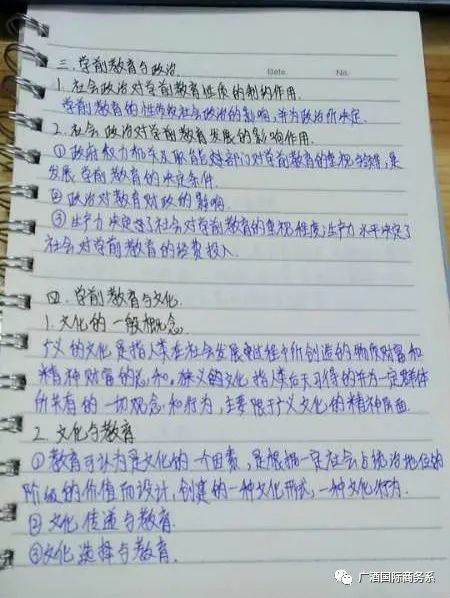 Date. No.
三. 学前教育与政治.
1. 社会政治对学前教育性质的制约作用.
学前教育的性质受社会政治的影响,并为政治所决定.
2. 社会政治对学前教育发展的影响作用.
①政府权力机关及职能部门对学前教育的重视与领导,是
发展学前教育的决定条件.
②政治对教育财政的影响.
③生产力决定了社会对学前教育的重视程度;生产力水平决定了
社会对学前教育的经费投入.
四. 学前教育与文化.
1. 文化的一般概念.
广义的文化是指人类在社会发展过程中所创造的物质财富和
精神财富的总和。狭义的文化指人类后天习得的并为一定群体
所共有的一切观念和行为,主要限于广义文化的精神层面.
2. 文化与教育
①教育可认为是文化的一个因素,是根据一定社会占统治地位的
阶级的价值而设计、创建的一种文化形式,一种文化行为.
②文化传递与教育.
③文化选择与教育.
广酒国际商务系